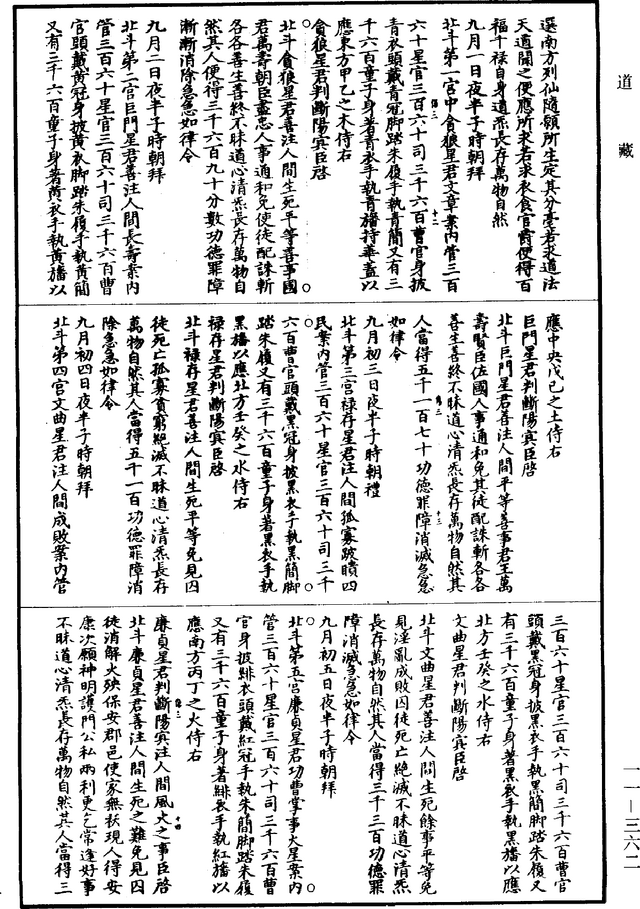 道藏
選南方列仙隨願所生定其分毫若求道法
天道開之便應所求若求衣食官爵便得百
福千禄自身道炁長存萬物自然
九月一日夜半子時朝拜
北斗第一宫中貪狼星君文章案内管三百
六十星官三百六十司三千六百曹官身披
青衣頭戴青冠脚踏朱履手執青簡又有三
千六百童子身著青衣手執青旛持華蓋以
應東方甲乙之木侍右
貪狼星君判斷陽賓臣啓
北斗貪狼星君善注人間生死平等喜事國
君萬壽朝臣盡忠人事通和免使徒配誅斬
各各善生善終不昧道心清炁長存萬物自
然其人便得三千六百九十分數功德罪障
漸漸消除急急如律令
九月二日夜半子時朝拜
北斗第二宫巨門星君善注人間長壽案内
管三百六十星官三百六十司三千六百曹
官頭戴黄冠身披黄衣脚踏朱履手執黄簡
又有三千六百童子身著黄衣手執黄旛以
應中央戊己之土侍右
巨門星君判斷陽賓臣啓
北斗巨門星君善注人間平等喜事君王萬
壽賢臣佐國人事通和免其徒配誅斬各各
善生善終不昧道心清炁長存萬物自然其
人當得五千一百七十功德罪障消滅急急
如律令
九月初三日夜半子時朝禮
北斗第三宫禄存星君注人間孤寡跛瞶四
民案内管三百六十星官三百六十司三千
六百曹官頭戴黑冠身披黑衣手執黑簡脚
踏朱履又有三千六百童子身著黑衣手執
黑旛以應北方壬癸之水侍右
禄存星君判斷陽賓臣啓
北斗禄存星君善注人間生死平等免見囚
徒死亡孤寡貧窮絶滅不昧道心清炁長存
萬物自然其人當得五千一百功德罪障消
除急急如律令
九月初四日夜半子時朝拜
北斗第四宫文曲星君注人間成敗案内管
三百六十星官三百六十司三千六百曹官
頭戴黑冠身披黑衣手執黑簡脚踏朱履又
有三千六百童子身著黑衣手執黑旛以應
北方壬癸之水侍右
文曲星君判斷陽賓臣啓
北斗文曲星君善注人間生死餘事平等免
見淫亂成敗囚徒死亡絶滅不昧道心清炁
長存萬物自然其人當得三千三百功德罪
障消滅急急如律令
九月初五日夜半子時朝拜
北斗第五宫廉貞星君功曹掌事大星案内
管三百六十星官三百六十司三千六百曹
官身披緋衣頭戴紅冠手執朱簡脚踏朱履
又有三千六百童子身著緋衣手執紅旛以
應南方丙丁之火侍右
廉貞星君判斷陽賓注人間風火之事臣啓
北斗廉貞星君善注人間生死之難免見囚
徒消解火殃保安郡邑使家無狀現人得安
康次願神明護門公私兩利更乞常逢好事
不昧道心清炁長存萬物自然其人當得三
一一—三六二